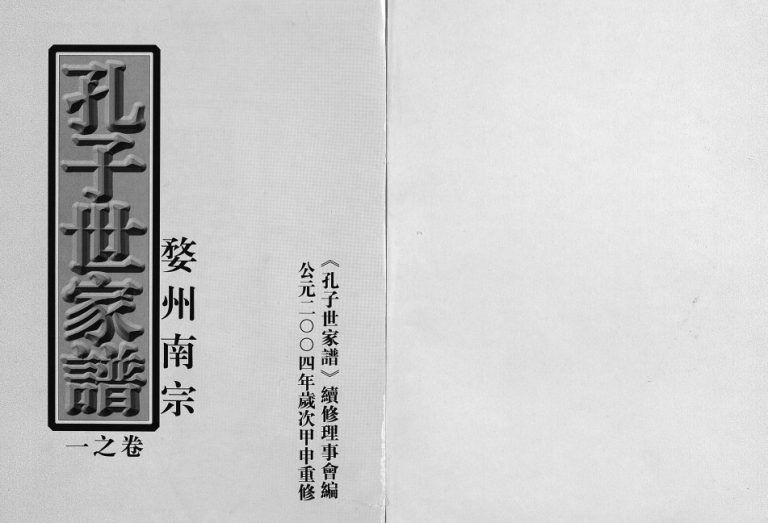 孔子世家譜
婺州南宗
卷之一
《孔子世家譜》續修理事會編
公元二〇〇四年歲次甲申重修